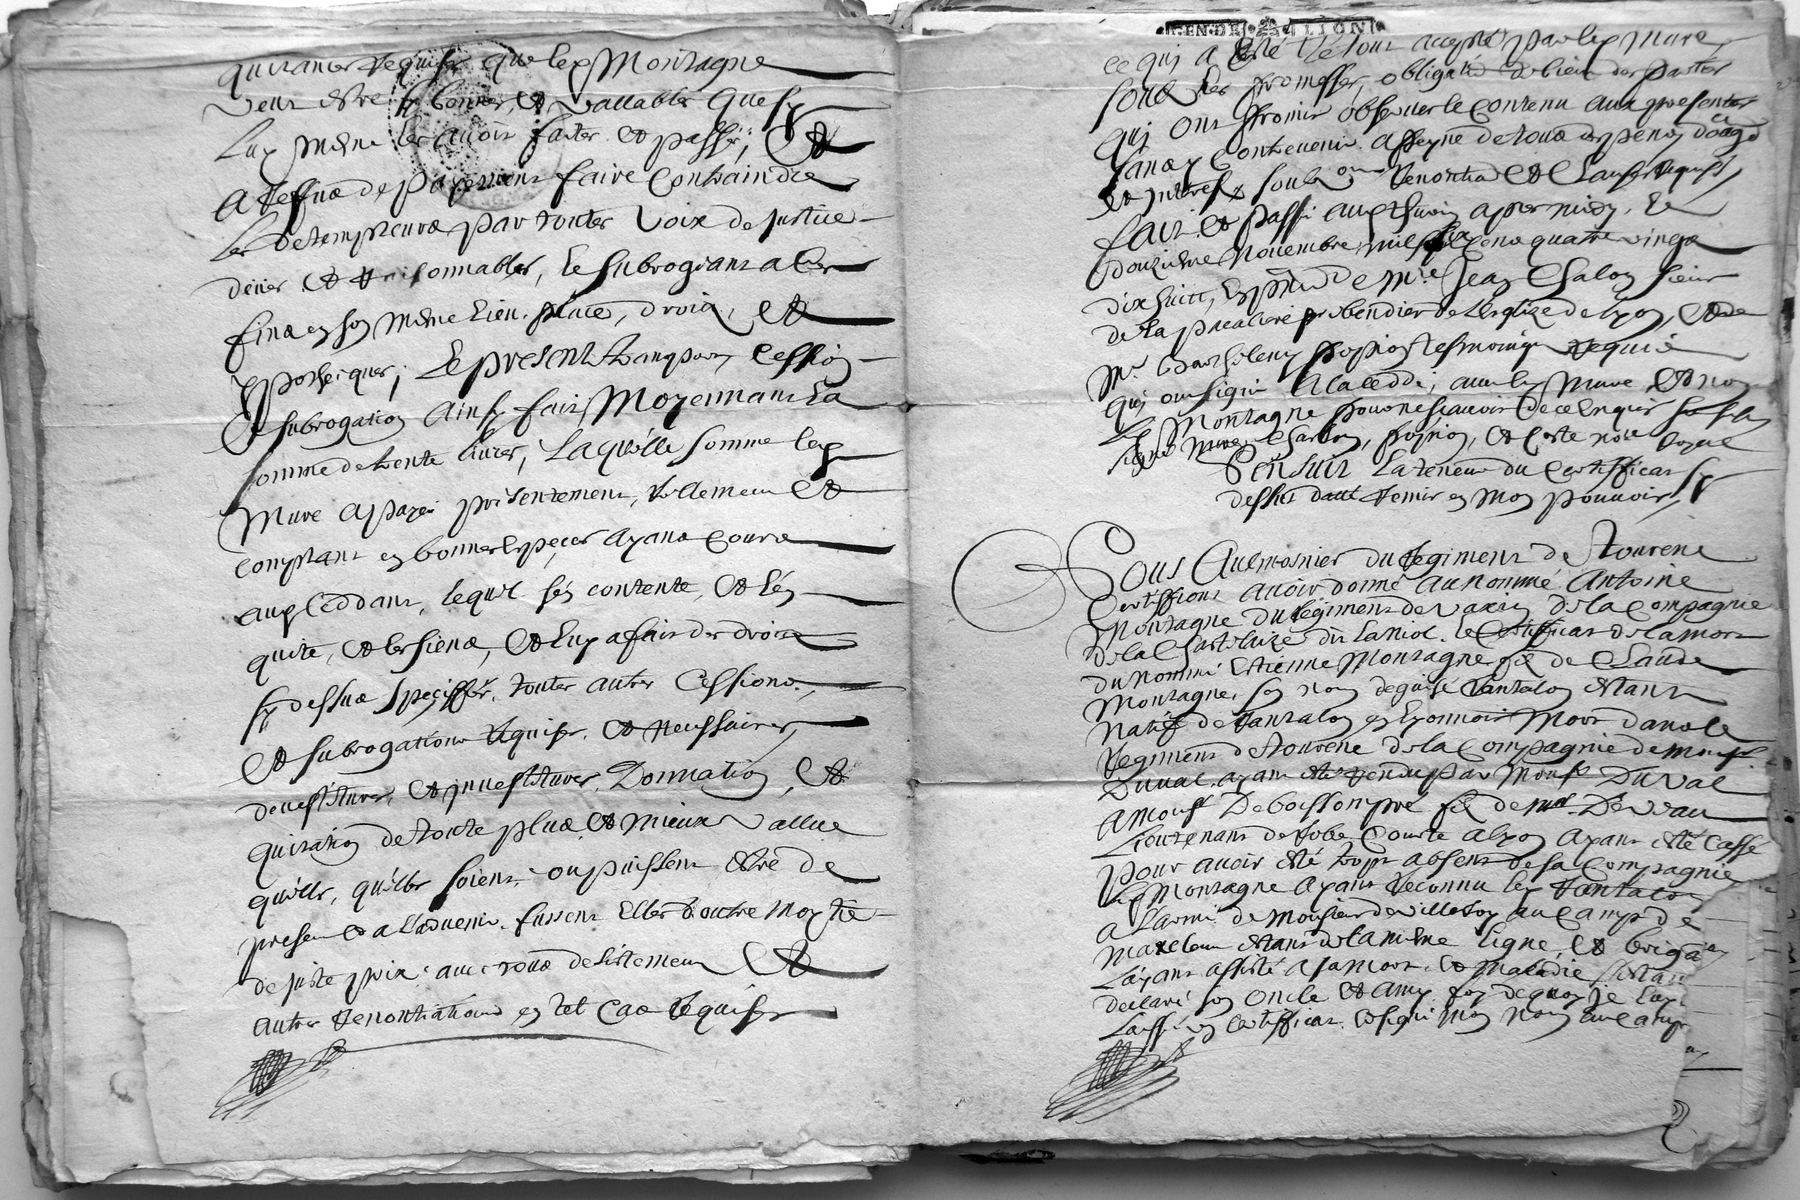 quitances requises que led Montagne
veut estre sy bonnes, et vallables que sy
luy mesme les avoit faites et passé, et
a reffus de payement faire contraindre
les detempteurs par toutes voix de justice
deües et raisonnables, le subrogeant a ces
fins en son mesme lieu, place, droits, et
hypotheques; le present transport, cession
et subrogation ainsy fait, moyennant la
somme de trente livres, laquelle somme led
Mure a payé présentement, réellement et
comptant en bonnes especes ayans cours
aud ceddant, lequel s'en contente, et l'en
quite, et les siens, et luy a fait des droits
sy dessus speciffiés, toutes autres cessions,
et subrogations requises, et necessaires,
devestitures, et jnvestitures, Donnation, et
quitation de toute plus et mieux vallue
quelle, qu'elle soient, ou puissent estre de
present et a l'advenir, fussent elles d'outre moytie
de juste prix, avec tous desistemens et
autres renontiations en tel cas requises
GEN DE LION
ce qui a esté le tout accepté par led Mure,
soubs les promesses, obligation de biens des parties
qui ont promis observer le contenu aux presentes
sans y contrevenir a peyne de tous despens domages
et interests, soubs renontia et clauses requises
fait et passé aud apres midy, le
douzieme Novembre mil six cens quatre vingt
dix huitt, en presence de Mre Jean Chalon sieur
de la prebendier de l'esglize de Lyon, et de
Mr Barthelemy popion tesmoings requis
qui ont signé a la cedde, avec led Mure, et non
led Montagne pour ne scavoir de ce enquis
signé Mure, Chalon, popion, et Coste nore royal
S'ensuit la teneur du certifficat sy
dessus dont remis en mon pouvoir
Nous Aulmosnier du regiment de Tourene
Certiffions avoir donné au nommé Antoine
Montagne du regiment de de la Compagnie
de la dit Laniol, le certifficat de la mort
du nommé Estienne Montagne fils de Claude
Montagne, son nom deguisé Tantalon estant
natif de Tantalon en Lyonnois mort dans le
Regiment de Tourene de la Compagnie de Monsr.
Duval, ayant esté vendu par Monsr Duval
a Monsr Deboissompré fils de Monsr Devau
Lieutenant de robe courte a Lyon ayant esté cassé
pour avoir esté trop absent de sa Compagnie
led Montagne ayant reconnu led Tantalon
a l'armé de Monsieur de Villeroy au camp de
estant de la mesme ligne, et briga
l'ayant assisté a sa mort, et maladie s'estan
declaré son oncle et amy foy dequoy je luy
laissé ce certifficat, et signé mon nom au camp